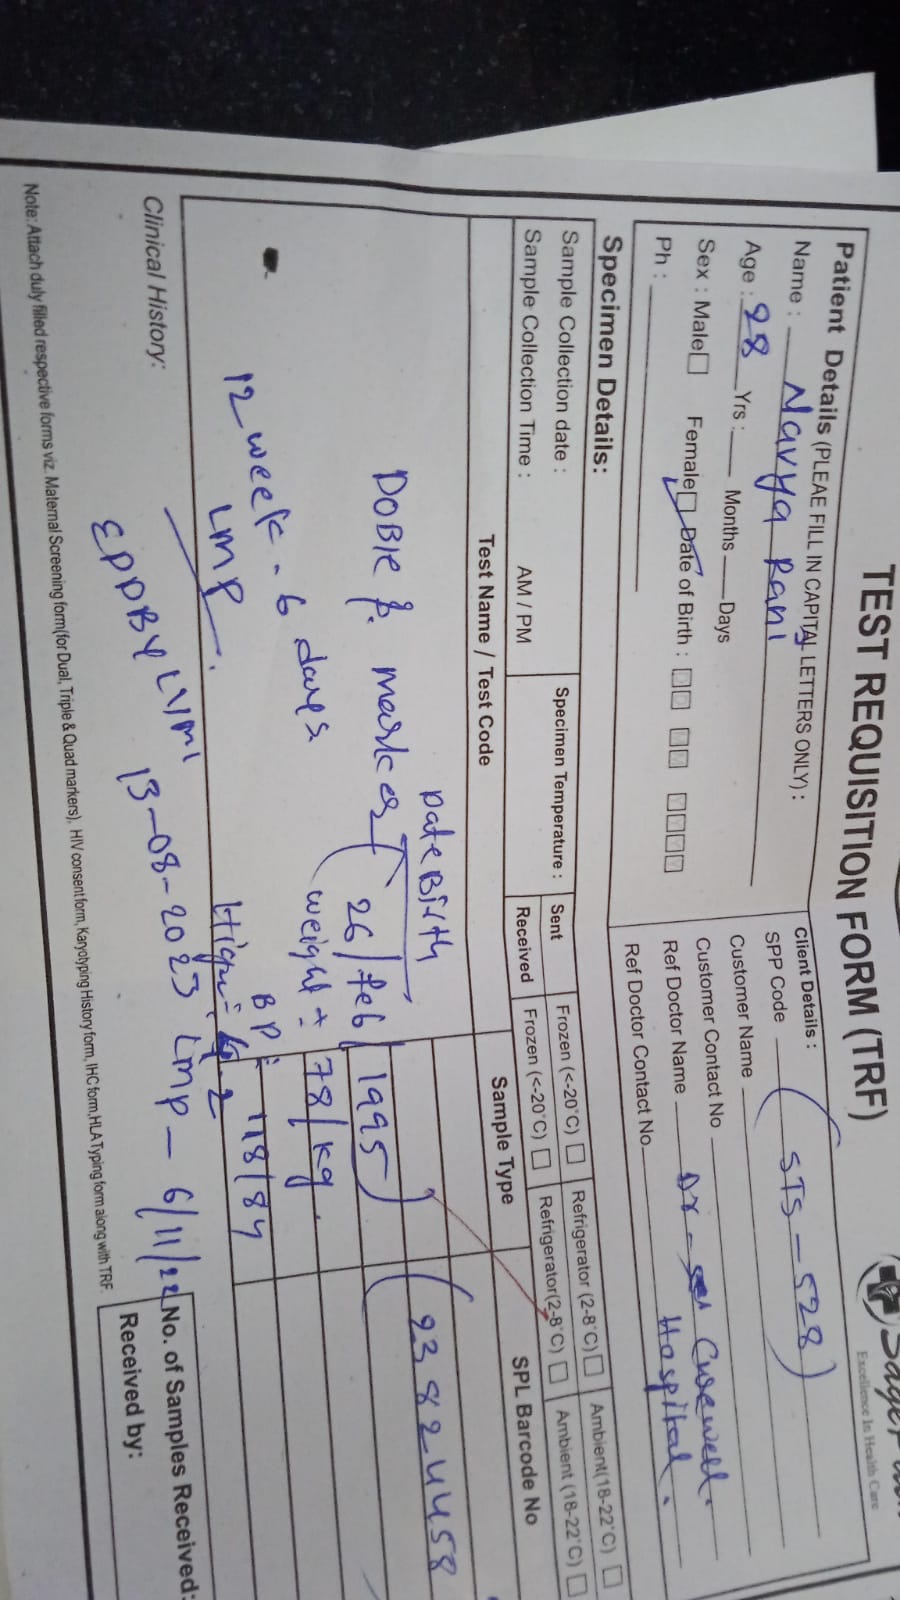 TEST REQUISITION FORM (TRF)
Excellence In Health Care
Patient Details (PLEAE FILL IN CAPITAL LETTERS ONLY) :
Name : Navya Rani
Age : 28 Yrs : Months Days
Sex : Male Female Date of Birth :
Ph :
Client Details :
SPP Code (STS - 528)
Customer Name
Customer Contact No
Ref Doctor Name Dr - Curewell Hospital.
Ref Doctor Contact No.
Specimen Details:
Sample Collection date :
Sample Collection Time : AM / PM
Specimen Temperature :
Sent Frozen (<-20°C) Refrigerator (2-8°C) Ambient(18-22°C)
Received Frozen (<-20°C) Refrigerator(2-8°C) Ambient (18-22°C)
Test Name / Test Code Sample Type SPL Barcode No
Date Birth
(23824458
DOBle marker (26/feb/1995)
weight : 78/kg.
12 week - 6 days
LMP.
BP : 118/84
Clinical History:
13-08-2023 Lmp - 6/11/22
No. of Samples Received:
Received by:
Note: Attach duly filled respective forms viz. Maternal Screening form(for Dual, Triple & Quad markers), HIV consent form, Karyotyping History form, IHC form,HLA Typing form along with TRF.